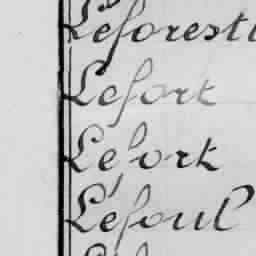 Leforest
Lefort
Lefort
Lefoul